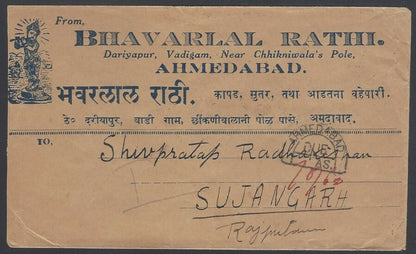 From,
BHAVARLAL RATHI.
Dariyapur, Vadigam, Near Chhikniwala's Pole,
AHMEDABAD.
भवरलाल राठी. कापड, सुतर, तथा आडतना वहेपारी.
ठे० दरीयापुर, वाडी गाम, छींकणीवालानी पोळ पासे, अमदावाद.
TO,
AHMEDABAD
DUE
AS.
Shivpratap Radhakisan
SUJANGARH
Rajputana